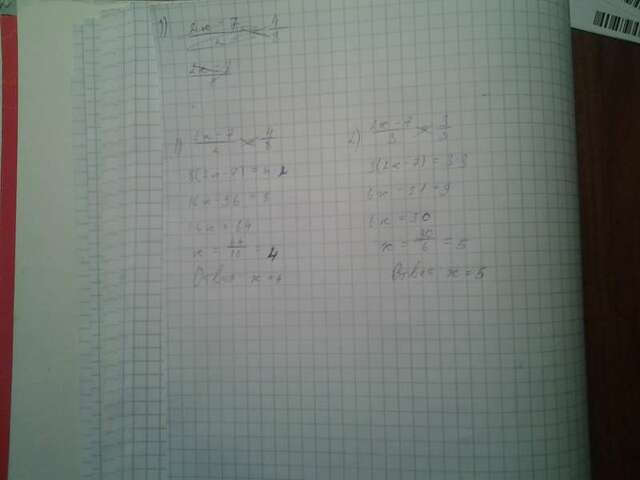 1)
2x - 7
4
2
8
2x
1) 2x - 7 / 2 = 4 / 8
8(2x - 7) = 4 2
16x - 56 = 8
16x = 64
x = 64/16 = 4
Ответ x = 4
2) 2x - 7 / 3 = 3 / 3
3(2x - 7) = 3 3
6x - 21 = 9
6x = 30
x = 30/6 = 5
Ответ x = 5